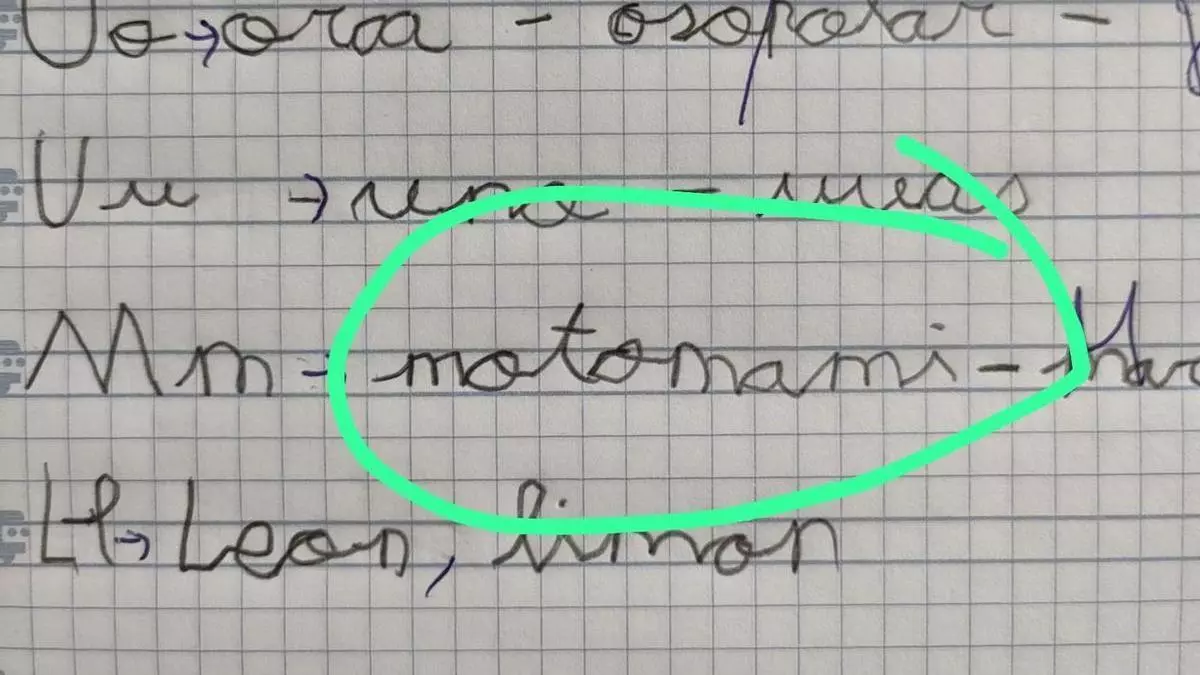 Oo → oraa - oso polar -
Uu → una - uvas
Mm → motomami - Mar
Ll → Leon, limon